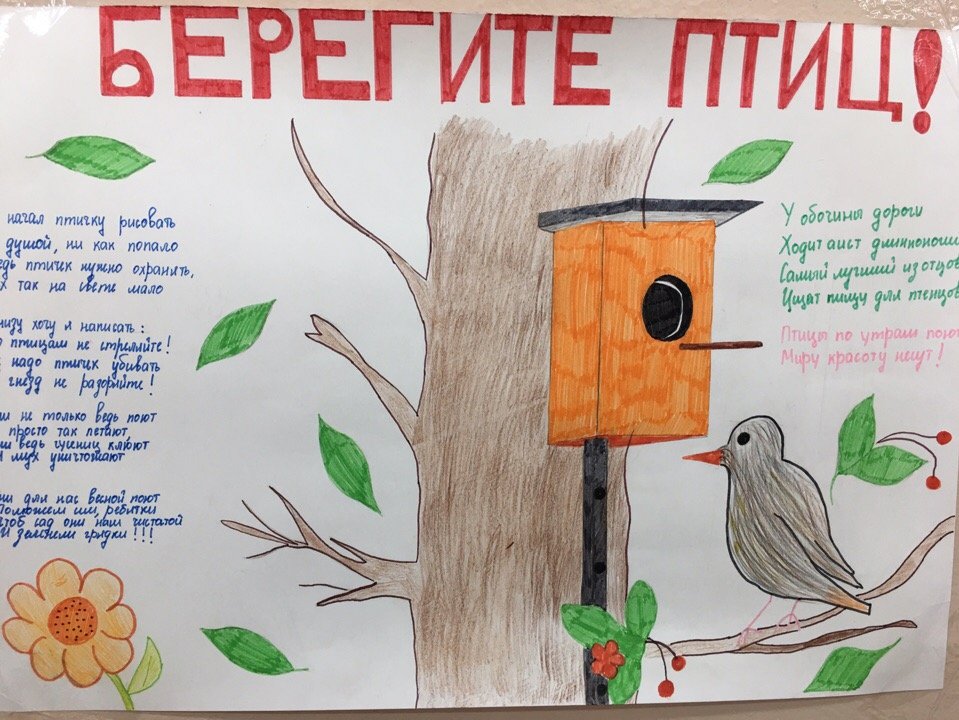 БЕРЕГИТЕ ПТИЦ!
начал птичку рисовать
душой, ни как попало
едь птичк нужно охранить,
х так на свете мало
низу хочу я написать:
птицам не стреляйте!
надо птичк убивать
гнезд не разоряйте!
не только ведь поют
просто так летают
ведь гусениц клюют
мух уничтожают
для нас весной поют
Поможем им, ребятки
чтоб сад они наш чистатой
И зеленели грядки!!!
У обочины дороги
Ходит аист длинноноги
Самый лучший из отцов
Ищат пищу для птенцов
Птицы по утрам поют
Миру красоту несут!